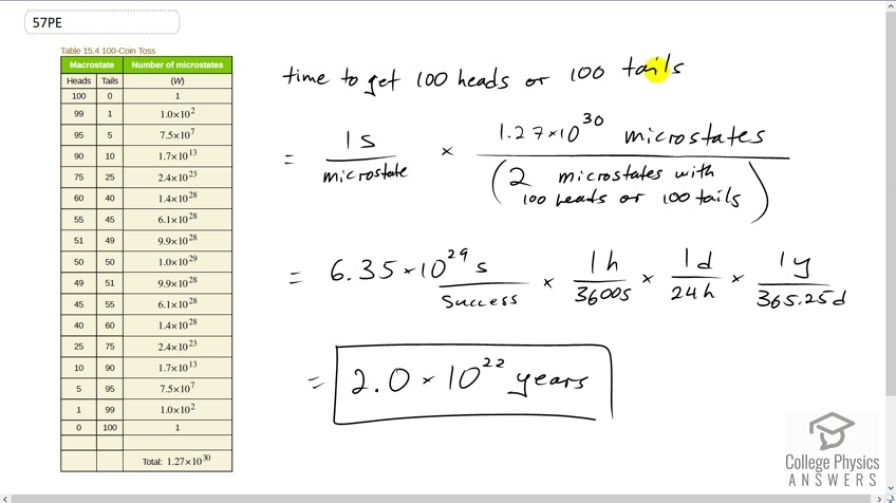 57PE
Table 15.4 100-Coin Toss
Macrostate Number of microstates
Heads Tails (W)
100 0 1
99 1 1.0×10²
95 5 7.5×10⁷
90 10 1.7×10¹³
75 25 2.4×10²³
60 40 1.4×10²⁸
55 45 6.1×10²⁸
51 49 9.9×10²⁸
50 50 1.0×10²⁹
49 51 9.9×10²⁸
45 55 6.1×10²⁸
40 60 1.4×10²⁸
25 75 2.4×10²³
10 90 1.7×10¹³
5 95 7.5×10⁷
1 99 1.0×10²
0 100 1
Total: 1.27×10³⁰
time to get 100 heads or 100 tails
= 1s / microstate × 1.27×10³⁰ microstates / (2 microstates with
100 heads or 100 tails)
= 6.35×10²⁹ s / success × 1h / 3600s × 1d / 24h × 1y / 365.25d
= 2.0 × 10²² years
College Physics
ANSWERS